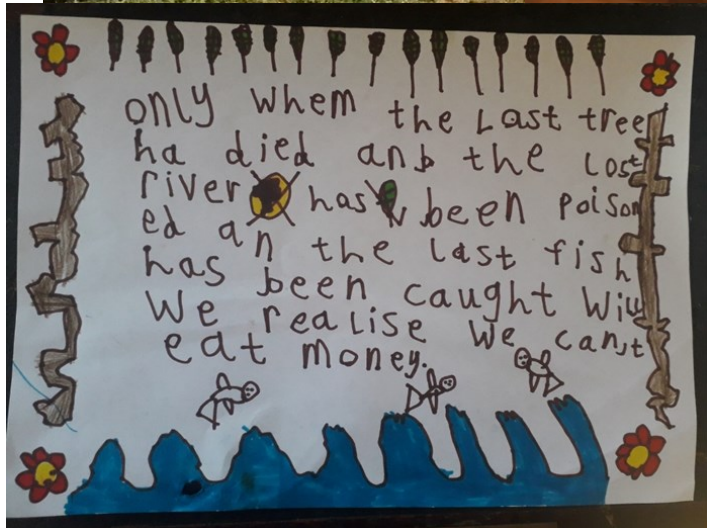 only whem the Last tree
ha died anb the Lost
river has been poison
ed an the last fish
has been caught will
We reaLise we can,t
eat money.